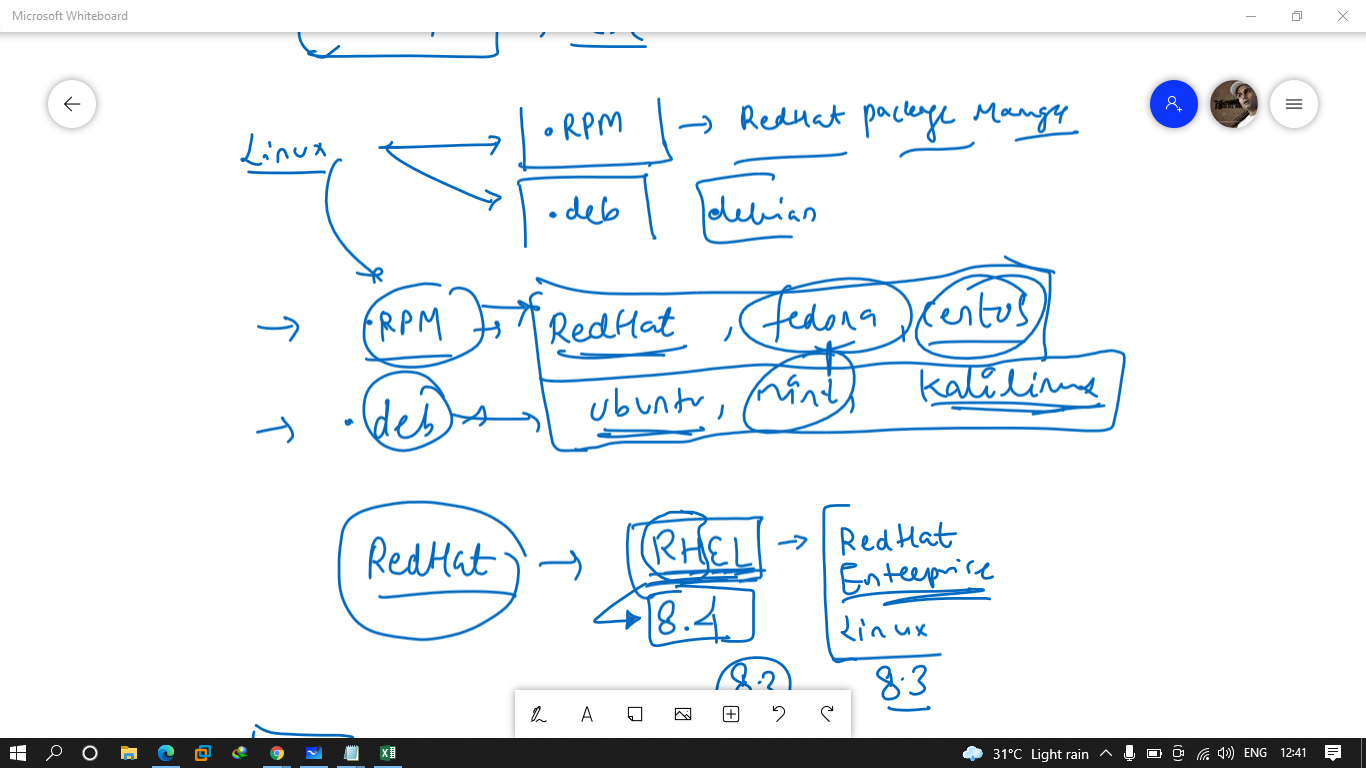 Microsoft Whiteboard
Linux
.RPM → RedHat package Manager
.deb debian
→ .RPM → RedHat, fedora, centos
→ .deb → ubuntu, mint, Kalilinux
RedHat → RHEL → RedHat
Enterprise
8.4 Linux
8.3
A
31°C Light rain ENG 12:41